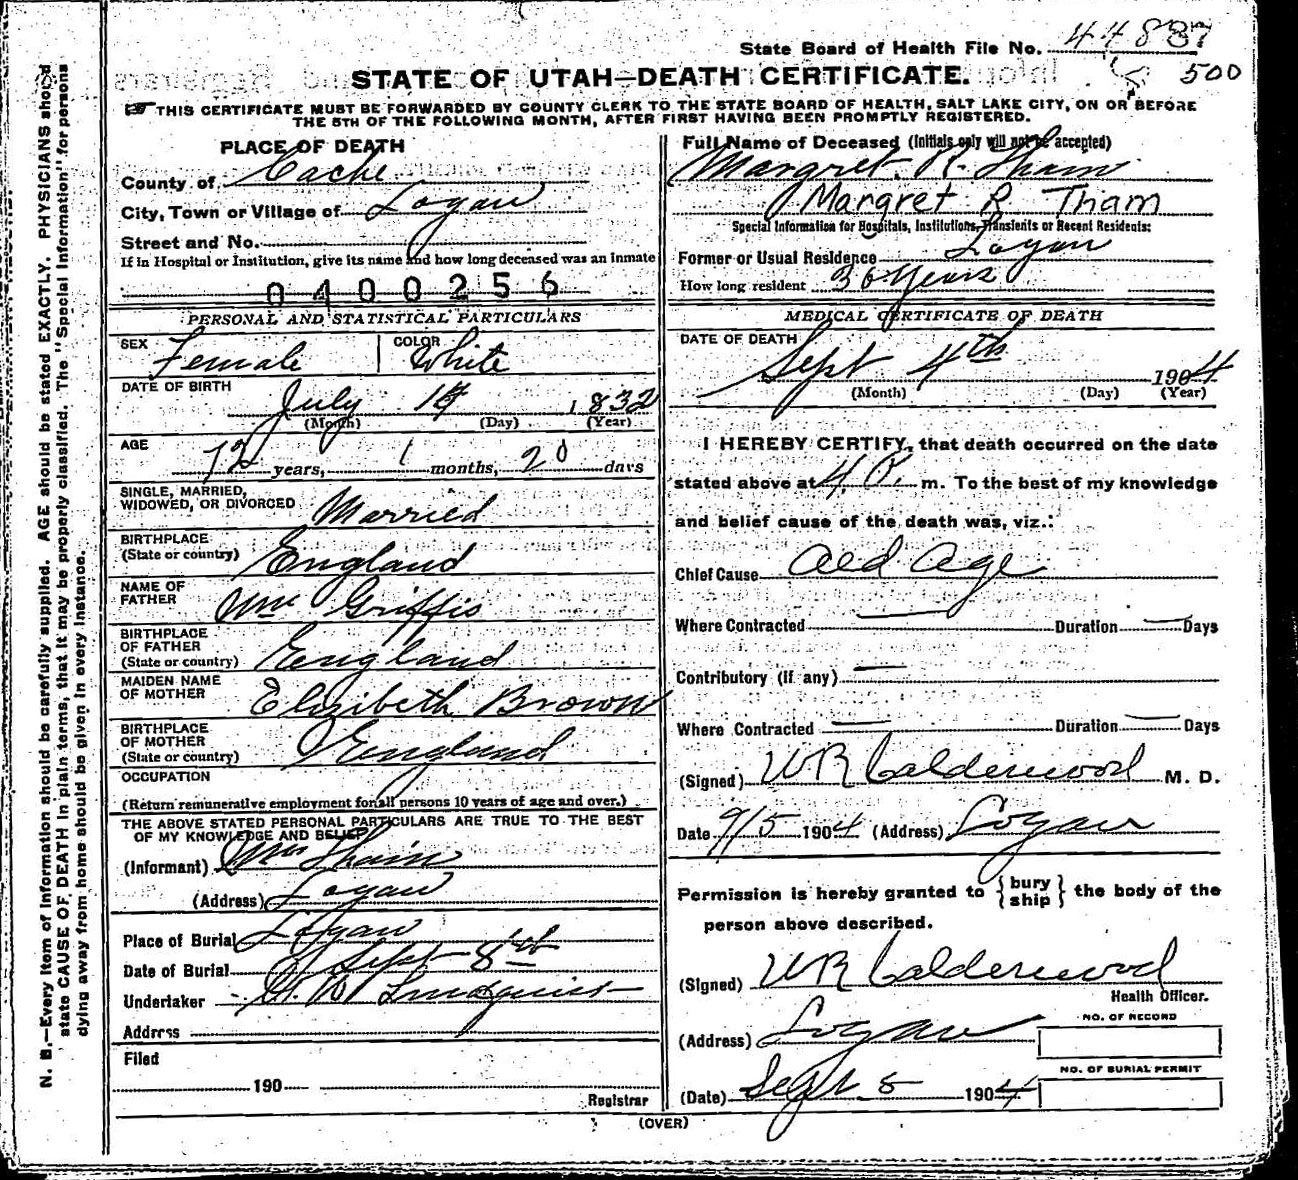 State Board of Health File No. 44887
500
STATE OF UTAH—DEATH CERTIFICATE.
THIS CERTIFICATE MUST BE FORWARDED BY COUNTY CLERK TO THE STATE BOARD OF HEALTH, SALT LAKE CITY, ON OR BEFORE
THE 5TH OF THE FOLLOWING MONTH, AFTER FIRST HAVING BEEN PROMPTLY REGISTERED.
PLACE OF DEATH
County of Cache
City, Town or Village of Logan
Street and No.
If in Hospital or Institution, give its name and how long deceased was an inmate
0400256
PERSONAL AND STATISTICAL PARTICULARS
SEX Female COLOR White
DATE OF BIRTH
July 1832
(Month) (Day) (Year)
AGE
72 years, 1 months, 20 days
SINGLE, MARRIED,
WIDOWED, OR DIVORCED Married
BIRTHPLACE
(State or country) England
NAME OF
FATHER Wm Griffis
BIRTHPLACE
OF FATHER
(State or country) England
MAIDEN NAME
OF MOTHER Elizibeth Brown
BIRTHPLACE
OF MOTHER
(State or country) England
OCCUPATION
(Return remunerative employment for all persons 10 years of age and over.)
THE ABOVE STATED PERSONAL PARTICULARS ARE TRUE TO THE BEST
OF MY KNOWLEDGE AND BELIEF
(Informant)
(Address) Logan
Place of Burial Logan
Date of Burial Sept 8th
Undertaker Lundquist
Address
Filed
190
Registrar
Full Name of Deceased (Initials only will not be accepted)
Margret R. Tham
Margret R Tham
Special Information for Hospitals, Institutions, Transients or Recent Residents:
Former or Usual Residence Logan
How long resident 30 years
MEDICAL CERTIFICATE OF DEATH
DATE OF DEATH
Sept 4th 1904
(Month) (Day) (Year)
I HEREBY CERTIFY, that death occurred on the date
stated above at 4 P. m. To the best of my knowledge
and belief cause of the death was, viz.:
Chief Cause Old Age
Where Contracted — Duration — Days
Contributory (if any) —
Where Contracted — Duration — Days
(Signed) W R Calderwood M. D.
Date 9/5 1904 (Address) Logan
Permission is hereby granted to {bury ship} the body of the
person above described.
(Signed) W R Calderwood
Health Officer.
(Address) Logan
NO. OF RECORD
NO. OF BURIAL PERMIT
(Date) Sept 5 1904
(OVER)
N. B.—Every item of information should be carefully supplied. AGE should be stated EXACTLY. PHYSICIANS should
state CAUSE OF DEATH in plain terms, that it may be properly classified. The "Special Information" for persons
dying away from home should be given in every instance.